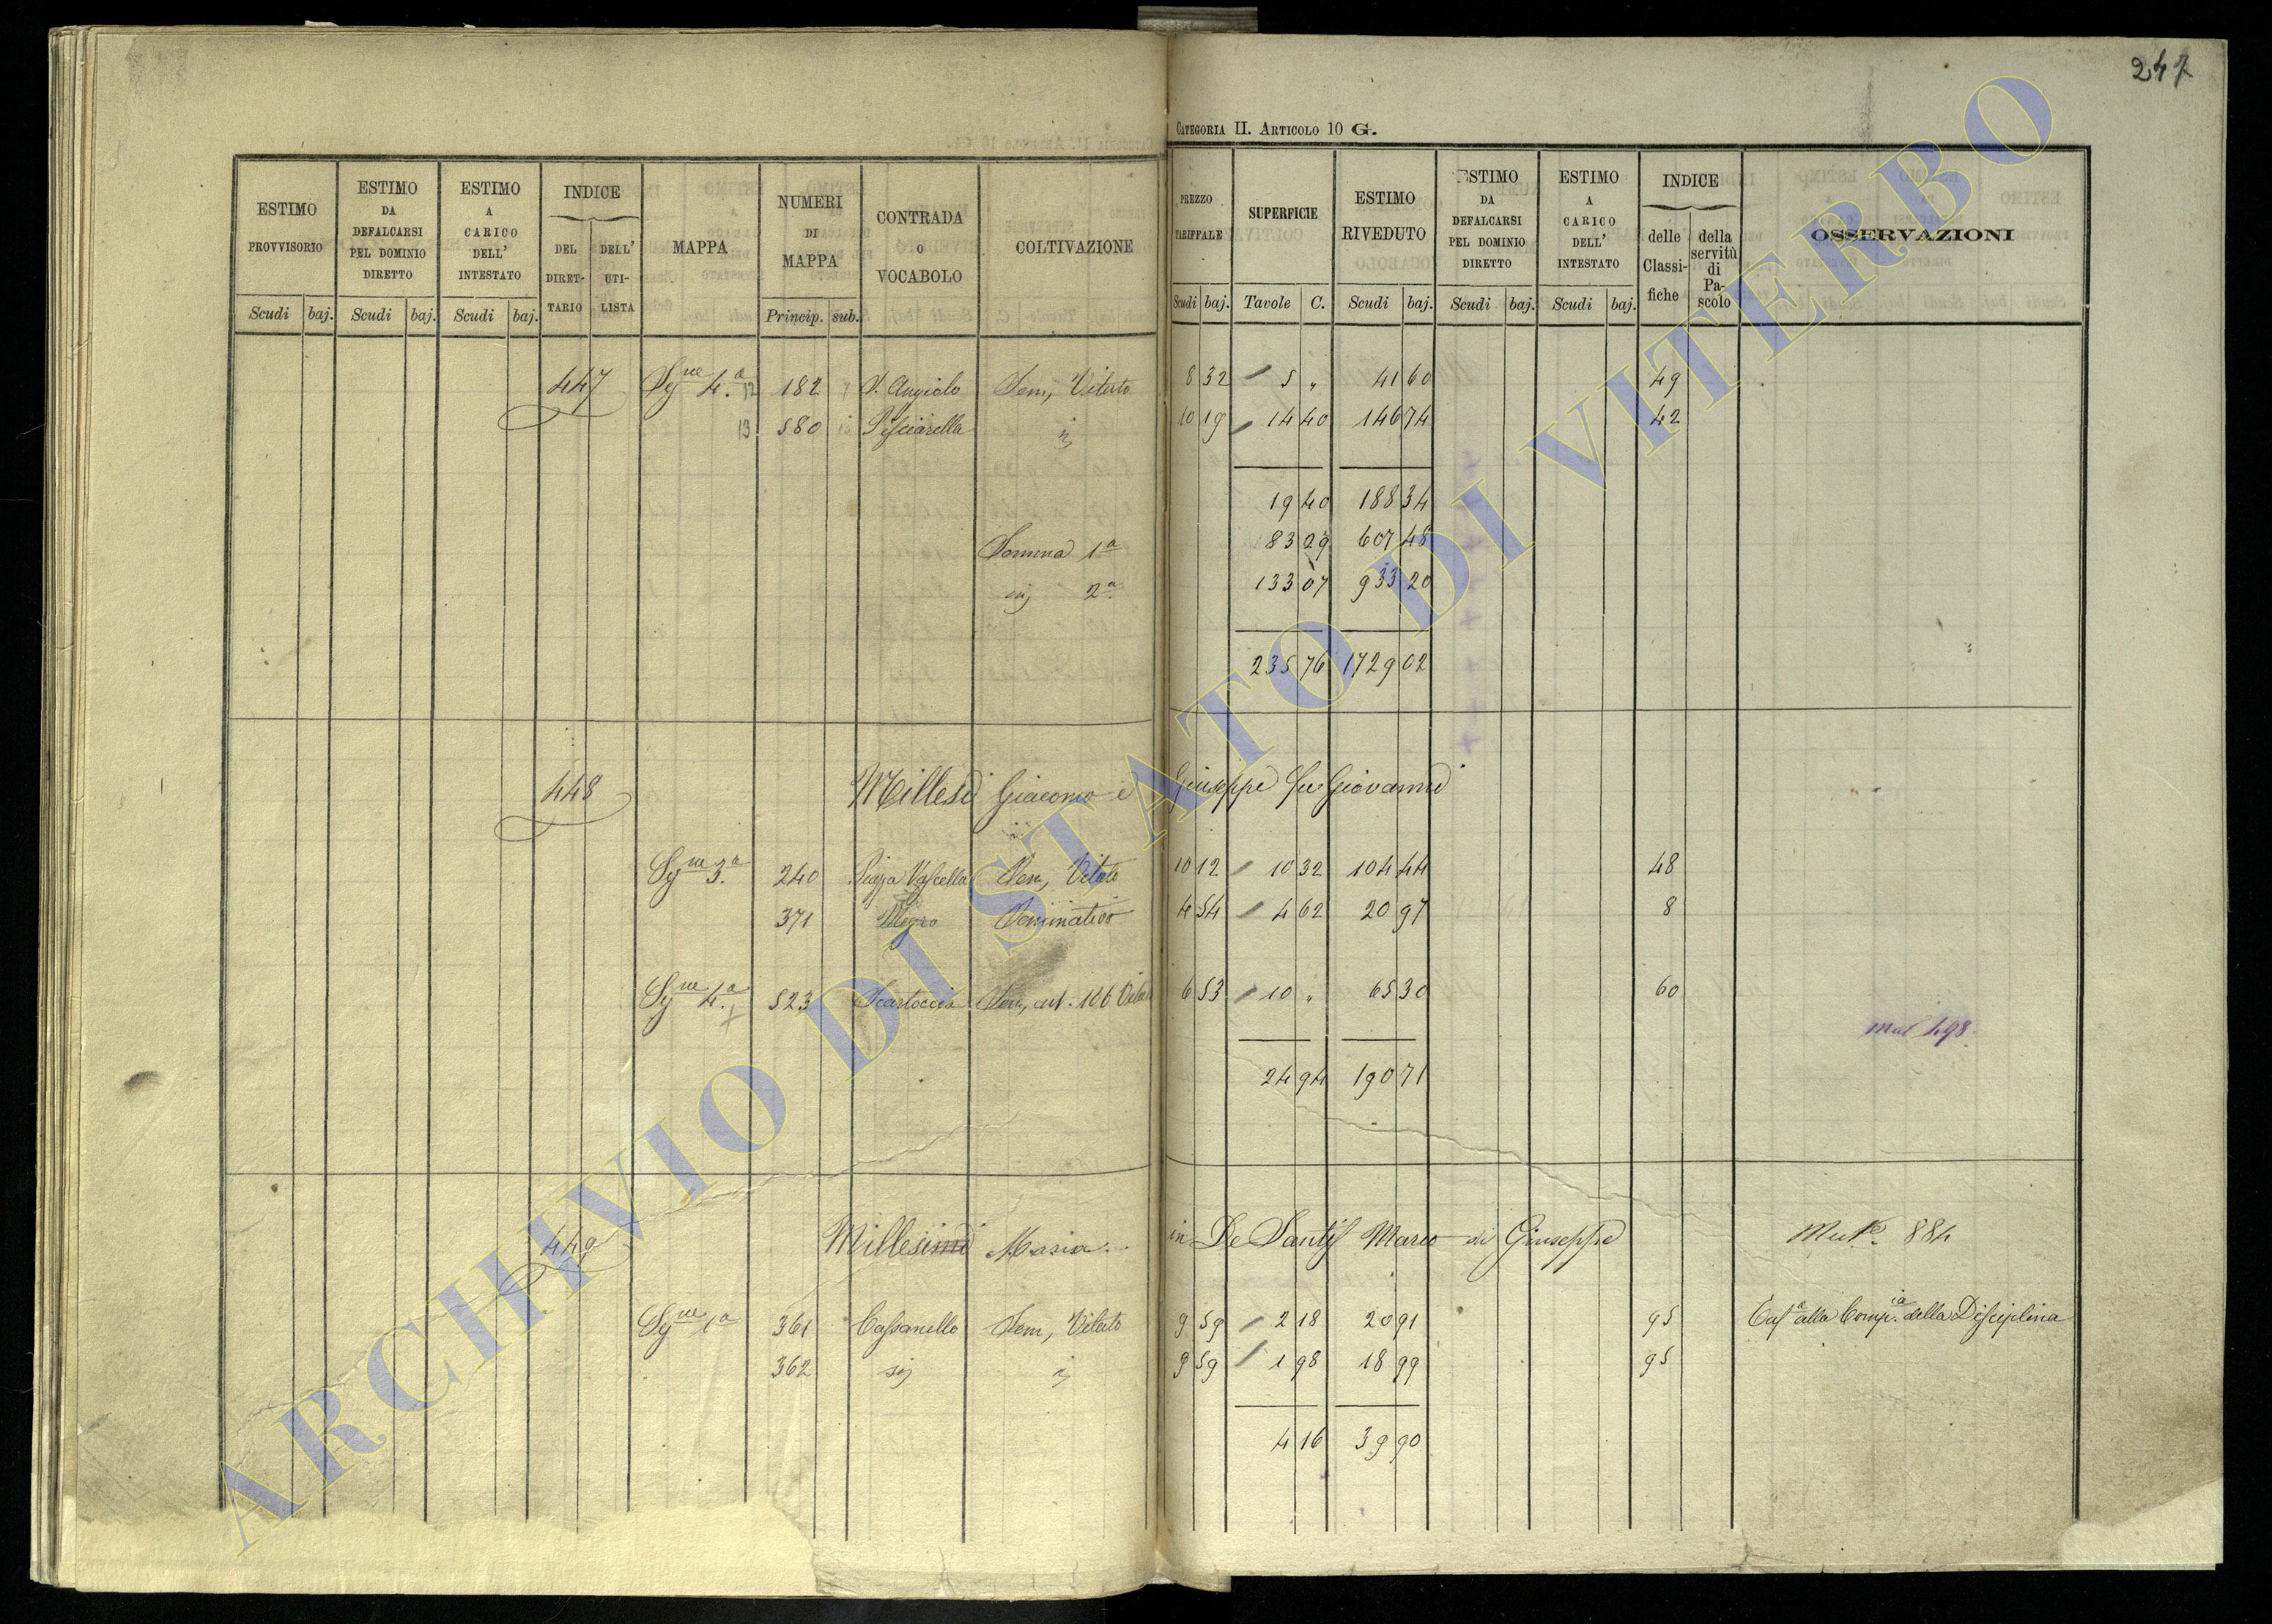 247
CATEGORIA II. ARTICOLO 10 G.
ESTIMO PROVVISORIO
ESTIMO DA DEFALCARSI PEL DOMINIO DIRETTO
ESTIMO A CARICO DELL' INTESTATO
INDICE
DEL DIRETTARIO
DELL' UTILISTA
MAPPA
NUMERI DI MAPPA
CONTRADA O VOCABOLO
COLTIVAZIONE
PREZZO TARIFFALE
SUPERFICIE
ESTIMO RIVEDUTO
ESTIMO DA DEFALCARSI PEL DOMINIO DIRETTO
ESTIMO A CARICO DELL' INTESTATO
INDICE
delle Classifiche
della servitù di Pascolo
OSSERVAZIONI
Scudi baj. Scudi baj. Scudi baj. Princip. sub. Scudi baj. Tavole C. Scudi baj. Scudi baj. Scudi baj.
447 Sgne 4.a 12 182 S. Angiolo Sem, Vitato 8 32 5 „ 41 60 49
13 580 Pisciarella 10 19 14 40 146 74 42
19 40 188 34
Somma 1a 83 29 607 48
2a 133 07 933 20
235 76 1729 02
448 Millesi Giacomo e Giuseppe fu Giovanni
Sgne 3.a 240 Piazza Vascella Sem, Vitato 10 12 10 32 104 44 48
371 Seminativo 4 54 4 62 20 97 8
Sgne 4.a 523 Scartoccia Sem, 6 53 10 „ 65 30 60
498
24 94 190 71
449 Millesimi Maria in De Santis Marco di Giuseppe 884
Sgne 1a 361 Cassanello Sem, Vitato 9 59 2 18 20 91 95 alla Comp.ia della Disciplina
362 9 59 1 98 18 99 95
4 16 39 90
ARCHIVIO DI STATO DI VITERBO